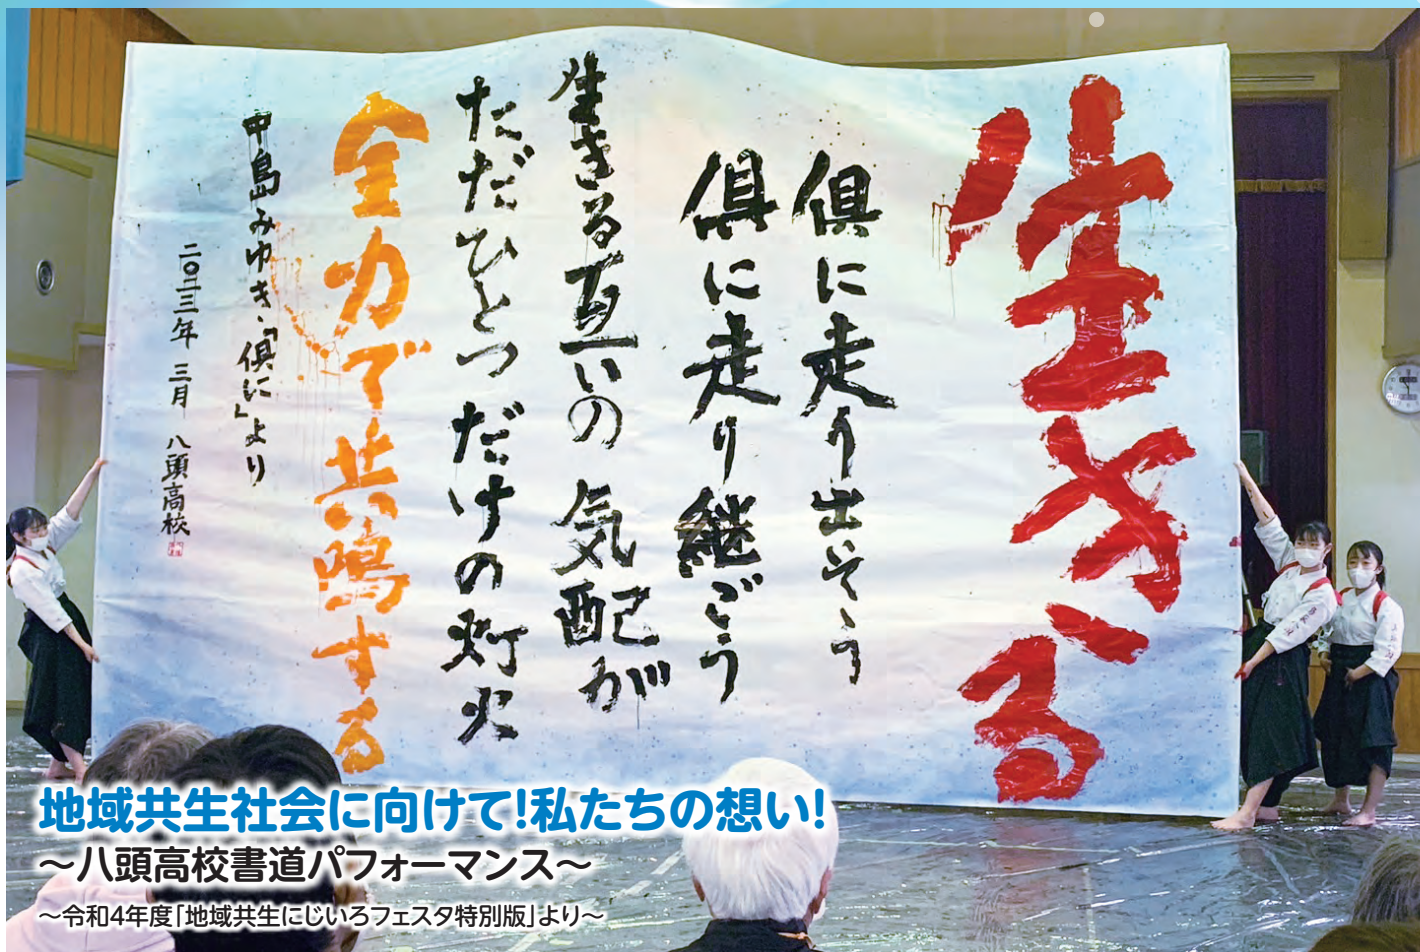 生きる
倶に走り出そう
倶に走り継ごう
生きる互いの気配が
ただひとつだけの灯火
全力で共鳴する
中島みゆき・「倶に」より
二〇二三年 三月 八頭高校
地域共生社会に向けて!私たちの想い!
～八頭高校書道パフォーマンス～
～令和4年度「地域共生にじいろフェスタ特別版」より～